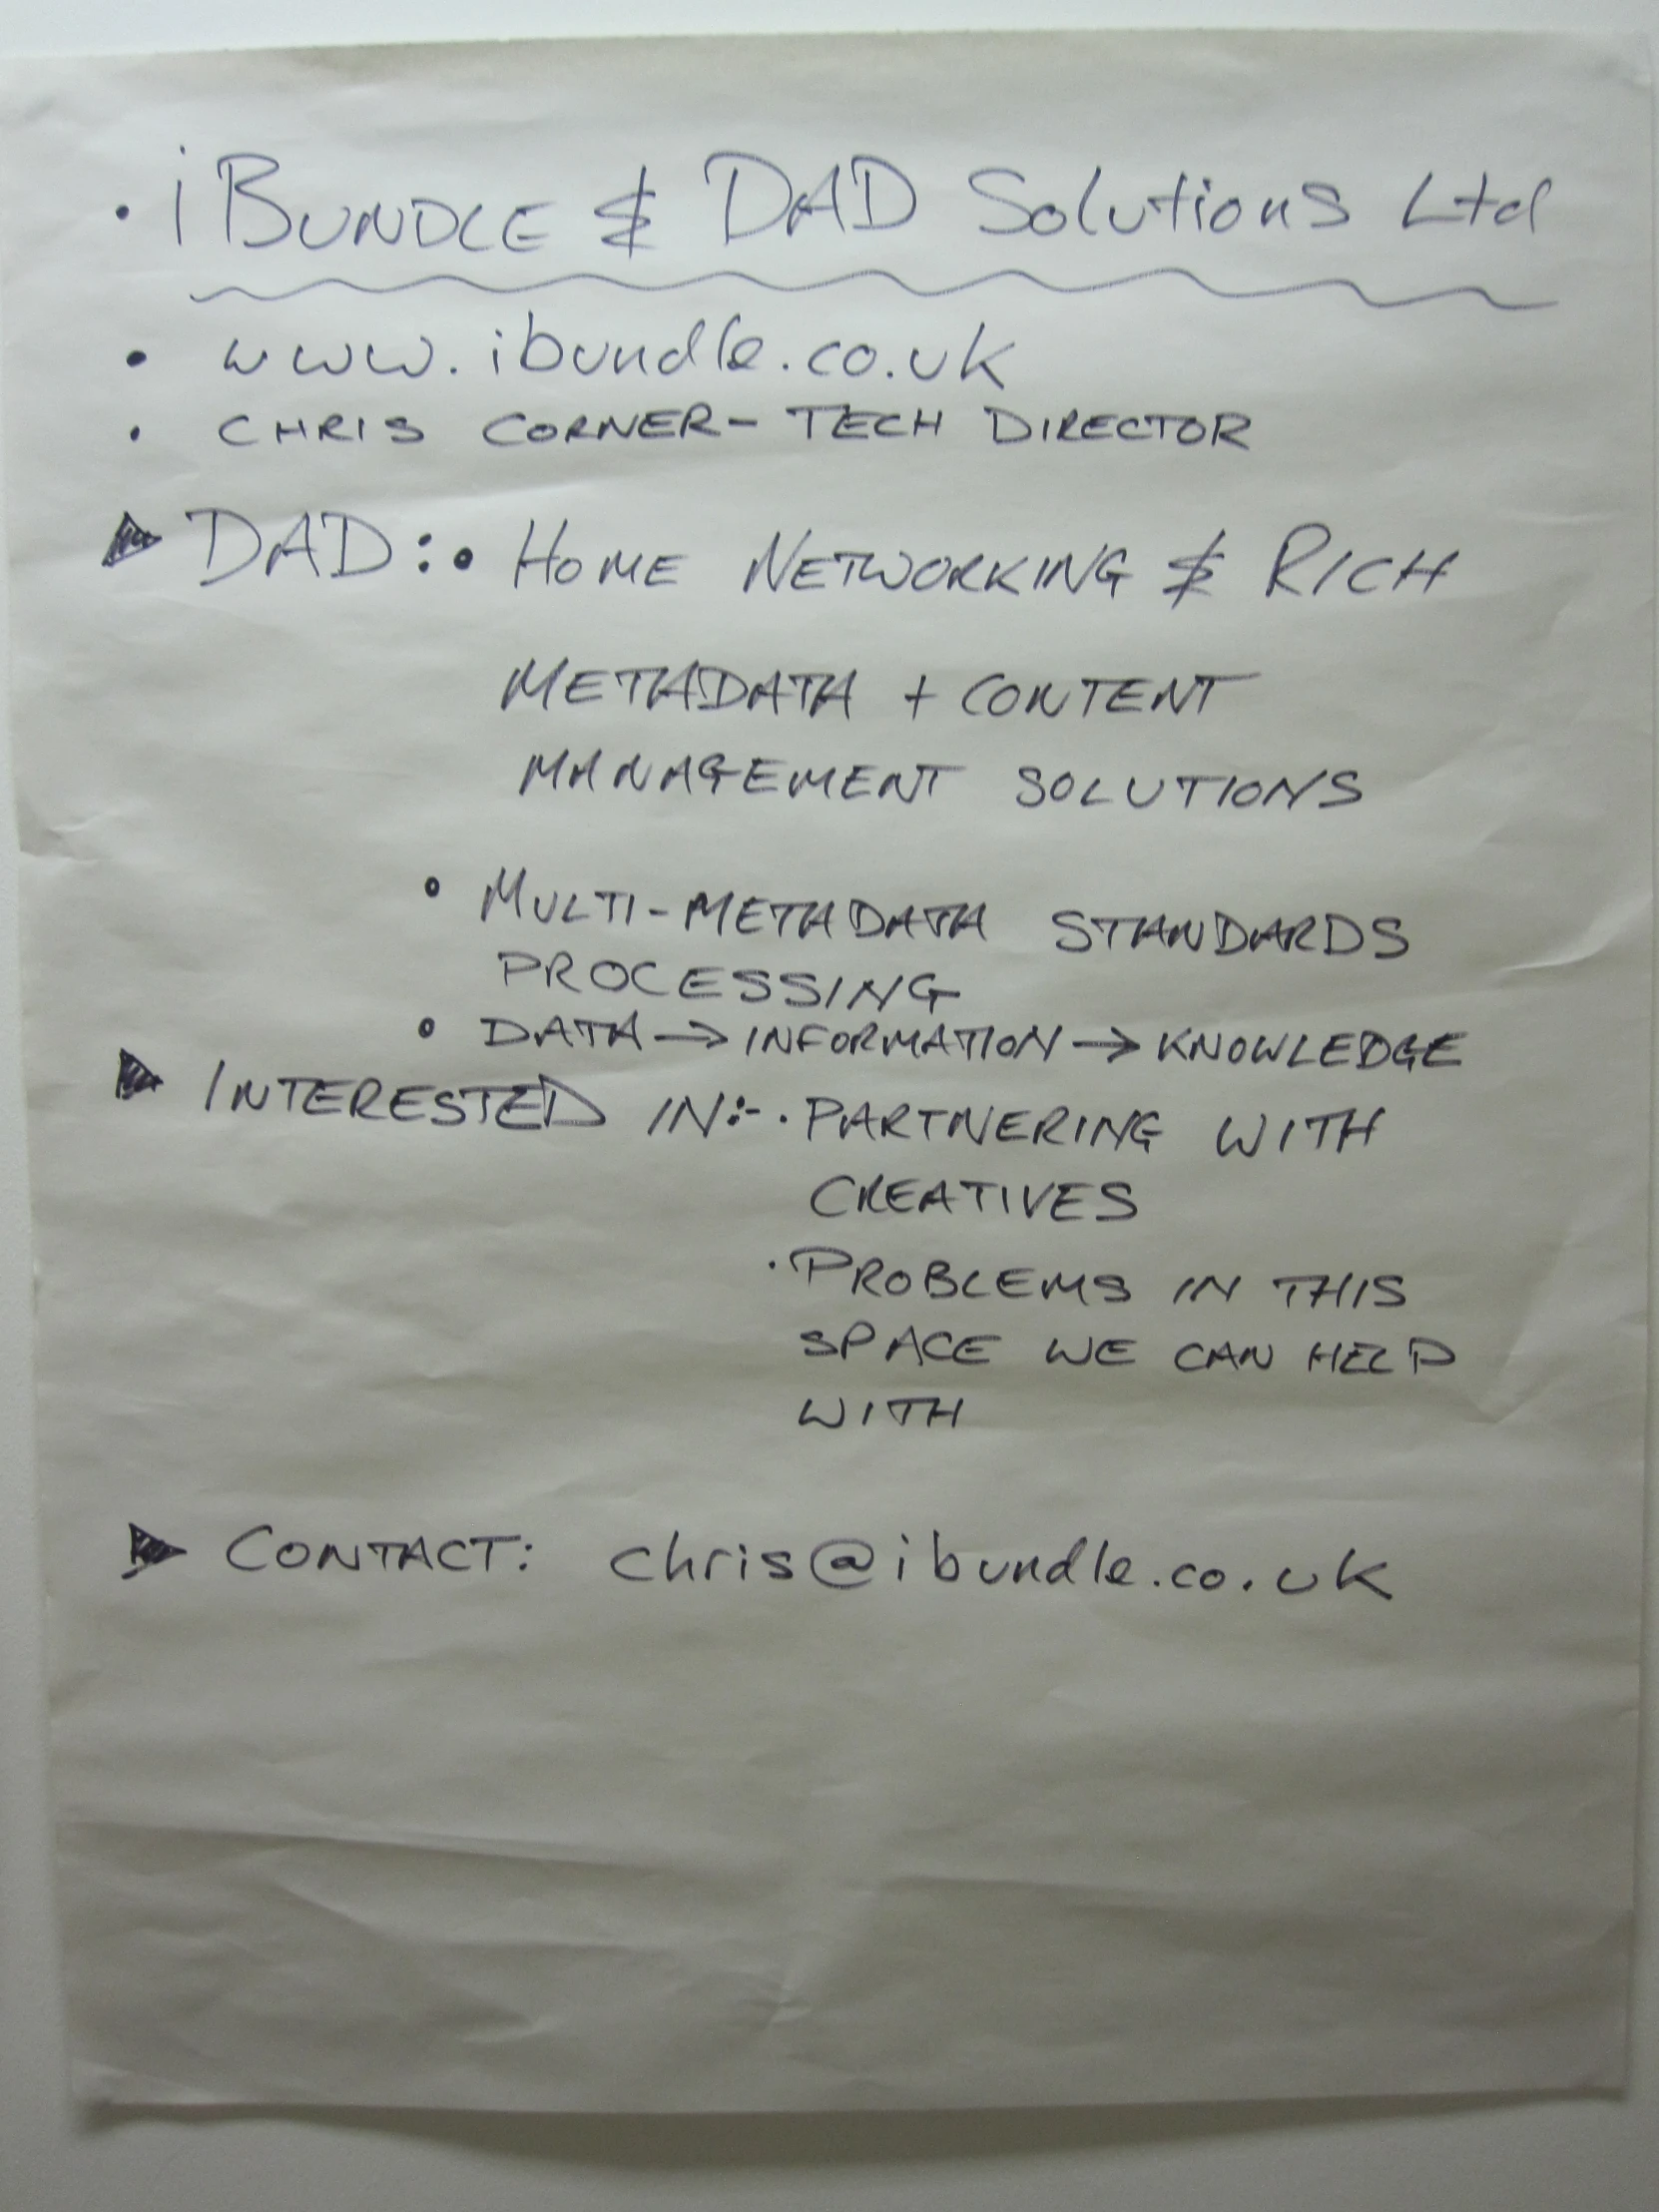 • iBUNDLE & DAD Solutions Ltd
• www.ibundle.co.uk
• CHRIS CORNER - TECH DIRECTOR
▶ DAD: • HOME NETWORKING & RICH
METADATA + CONTENT
MANAGEMENT SOLUTIONS
• MULTI-METADATA STANDARDS
PROCESSING
• DATA → INFORMATION → KNOWLEDGE
▶ INTERESTED IN:- • PARTNERING WITH
CREATIVES
• PROBLEMS IN THIS
SPACE WE CAN HELP
WITH
▶ CONTACT: chris@ibundle.co.uk